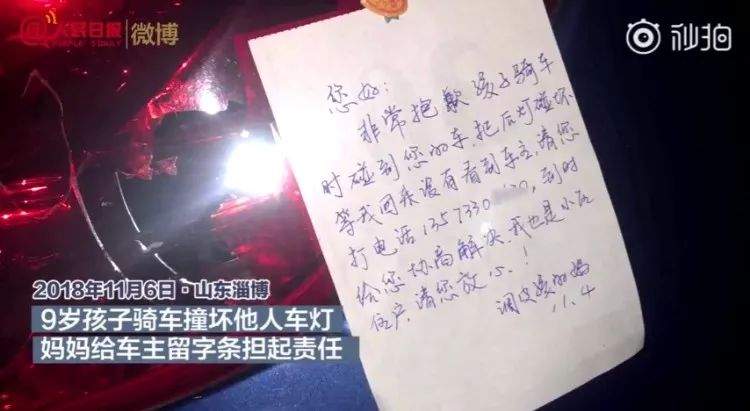 人民日报
PEOPLE'S DAILY
微博
秒拍
您好:
非常抱歉孩子骑车
时碰到您的车.把后灯碰坏
等我回来没有看到车主.请您
打电话 到时
给您协商解决.我也是小区
住户.请您放心!
调皮孩的妈
11.4
2018年11月6日·山东淄博
9岁孩子骑车撞坏他人车灯
妈妈给车主留字条担起责任